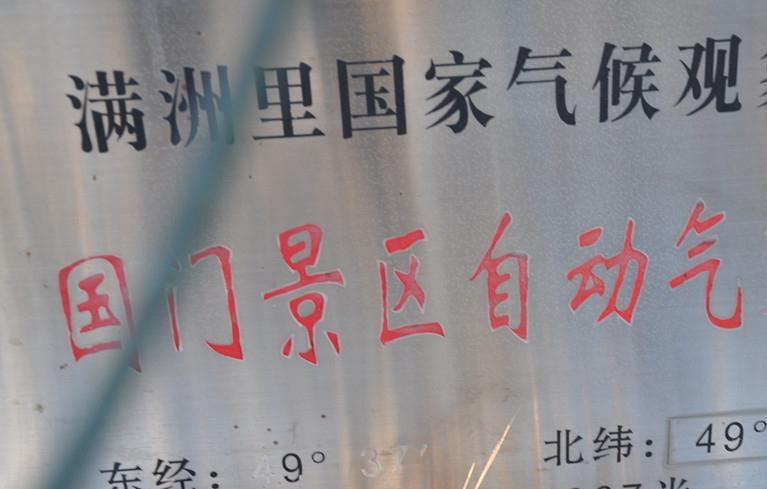 满洲里国家气候观
国门景区自动气
东经: 9° 37′ 北纬: 49°